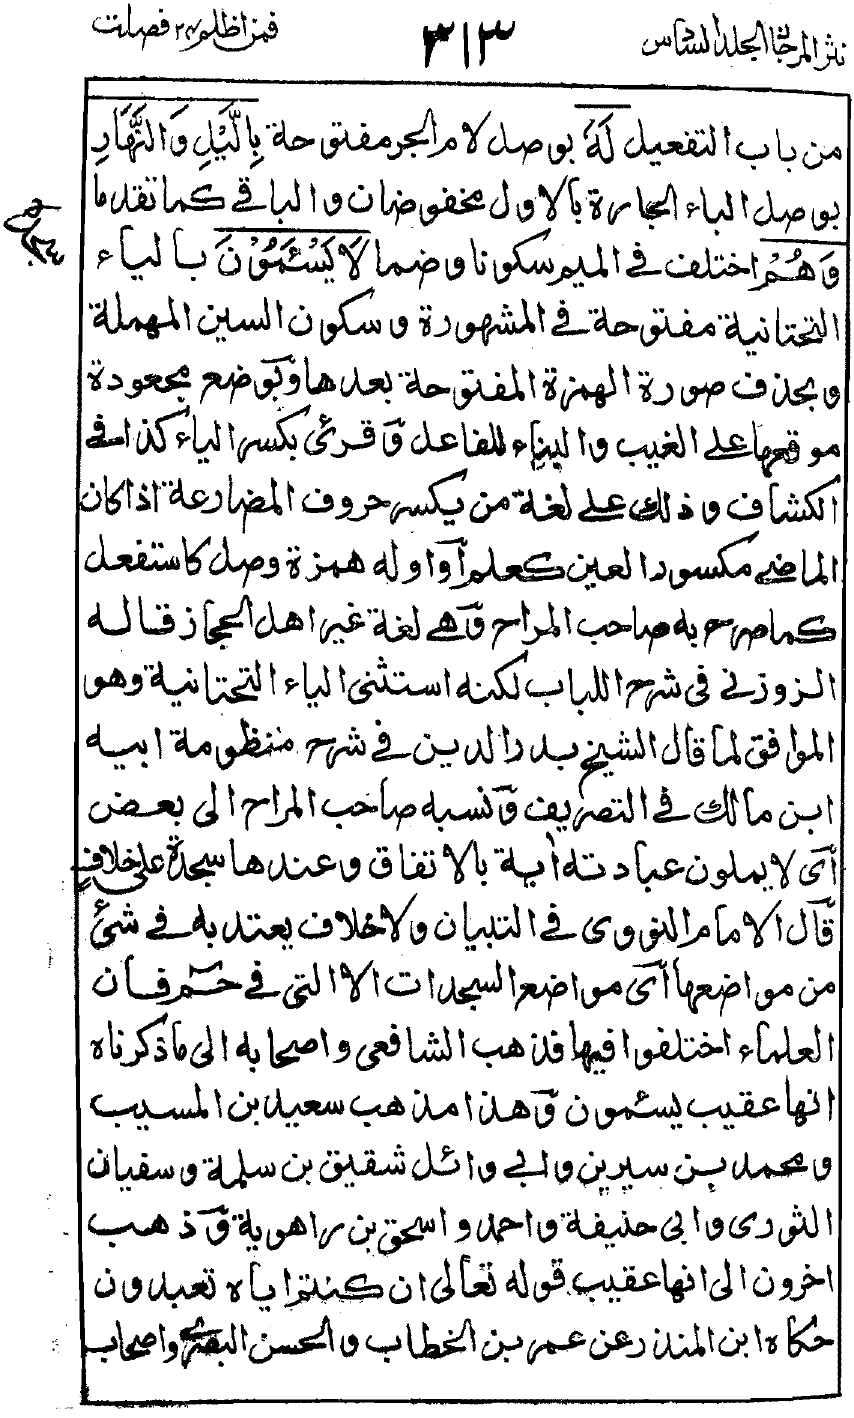 نثر المرجان المجلد السادس
٣١٣
فمن اظلم ٢٤ فصلت
من باب التفعيل لَهُ بوصل لام الجر مفتوحة بِالَّيْلِ وَالنَّهَارِ
بوصل الباء الجارة بالاول مخفوضان والباقي كما تقدما
وَهُمْ اختلف في الميم سكونا وضما لَا يَسْئَمُوْنَ بالياء
التحتانية مفتوحة في المشهورة وسكون السين المهملة
وبحذف صورة الهمزة المفتوحة بعدها وبوضع مجعودة
موقعها على الغيب والبناء للفاعل وقرئ بكسر الياء كذا في
الكشاف وذلك على لغة من يكسر حروف المضارعة اذا كان
الماضي مكسور العين كعلم او اوله همزة وصل كاستفعل
كما صرح به صاحب المراح وهي لغة غير اهل الحجاز قاله
الزوزني في شرح اللباب لكنه استثنى الياء التحتانية وهو
الموافق لما قال الشيخ بدر الدين في شرح منظومة ابيه
ابن مالك في التصريف ونسبه صاحب المراح الى بعض
اى لا يملون عبادته اٰية بالاتفاق وعندها سجدة على خلافٍ
قال الامام النووى في التبيان ولا خلاف يعتد به في شئ
من مواضعها اى مواضع السجدات الا التي في حٰمۤ فان
العلماء اختلفوا فيها فذهب الشافعى واصحابه الى ما ذكرناه
انها عقيب يسئمون وهذا مذهب سعيد بن المسيب
ومحمد بن سيرين وابي وائل شقيق بن سلمة وسفيان
الثورى وابى حنيفة واحمد واسحق بن راهوية وذهب
اخرون الى انها عقيب قوله تعالى ان كنتم اياه تعبدون
حكاه ابن المنذر عن عمر بن الخطاب والحسن البصري واصحاب